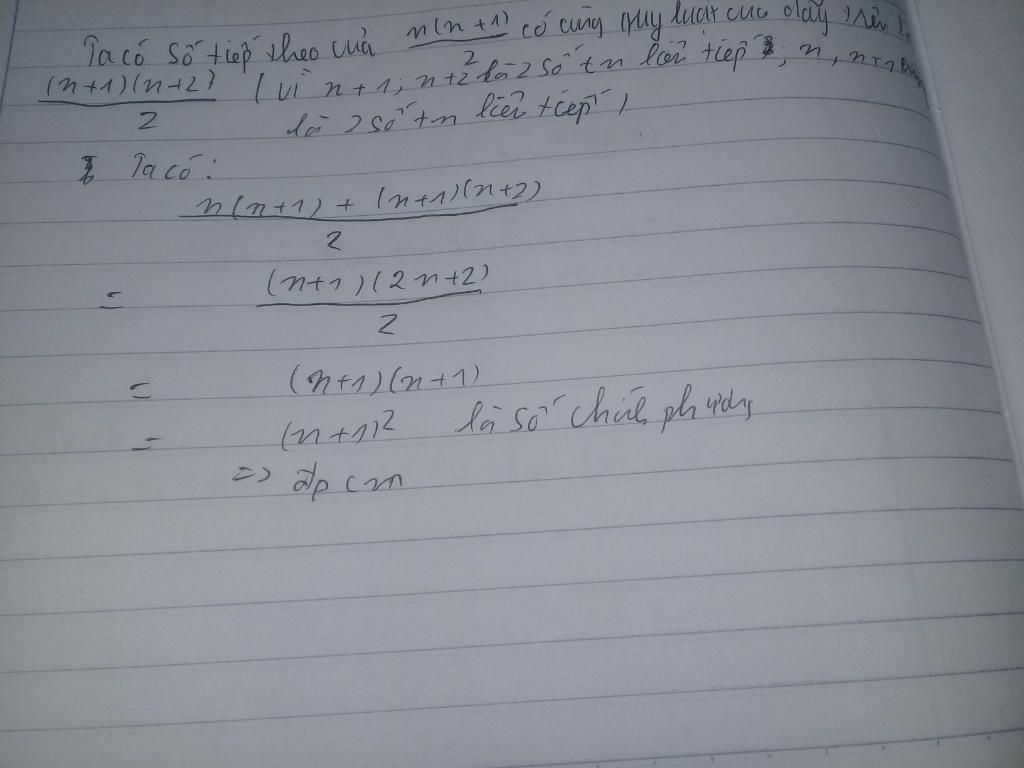 Ta có số tiếp theo của n(n+1)/2 có cùng quy luật của dãy trên
(n+1)(n+2)/2 (vì n+1; n+2 là 2 số tn liên tiếp; n, n+1 cũng
là 2 số tn liên tiếp)
Ta có:
n(n+1) + (n+1)(n+2)
2
= (n+1)(2n+2)
2
= (n+1)(n+1)
= (n+1)² là số chính phương
=> đpcm